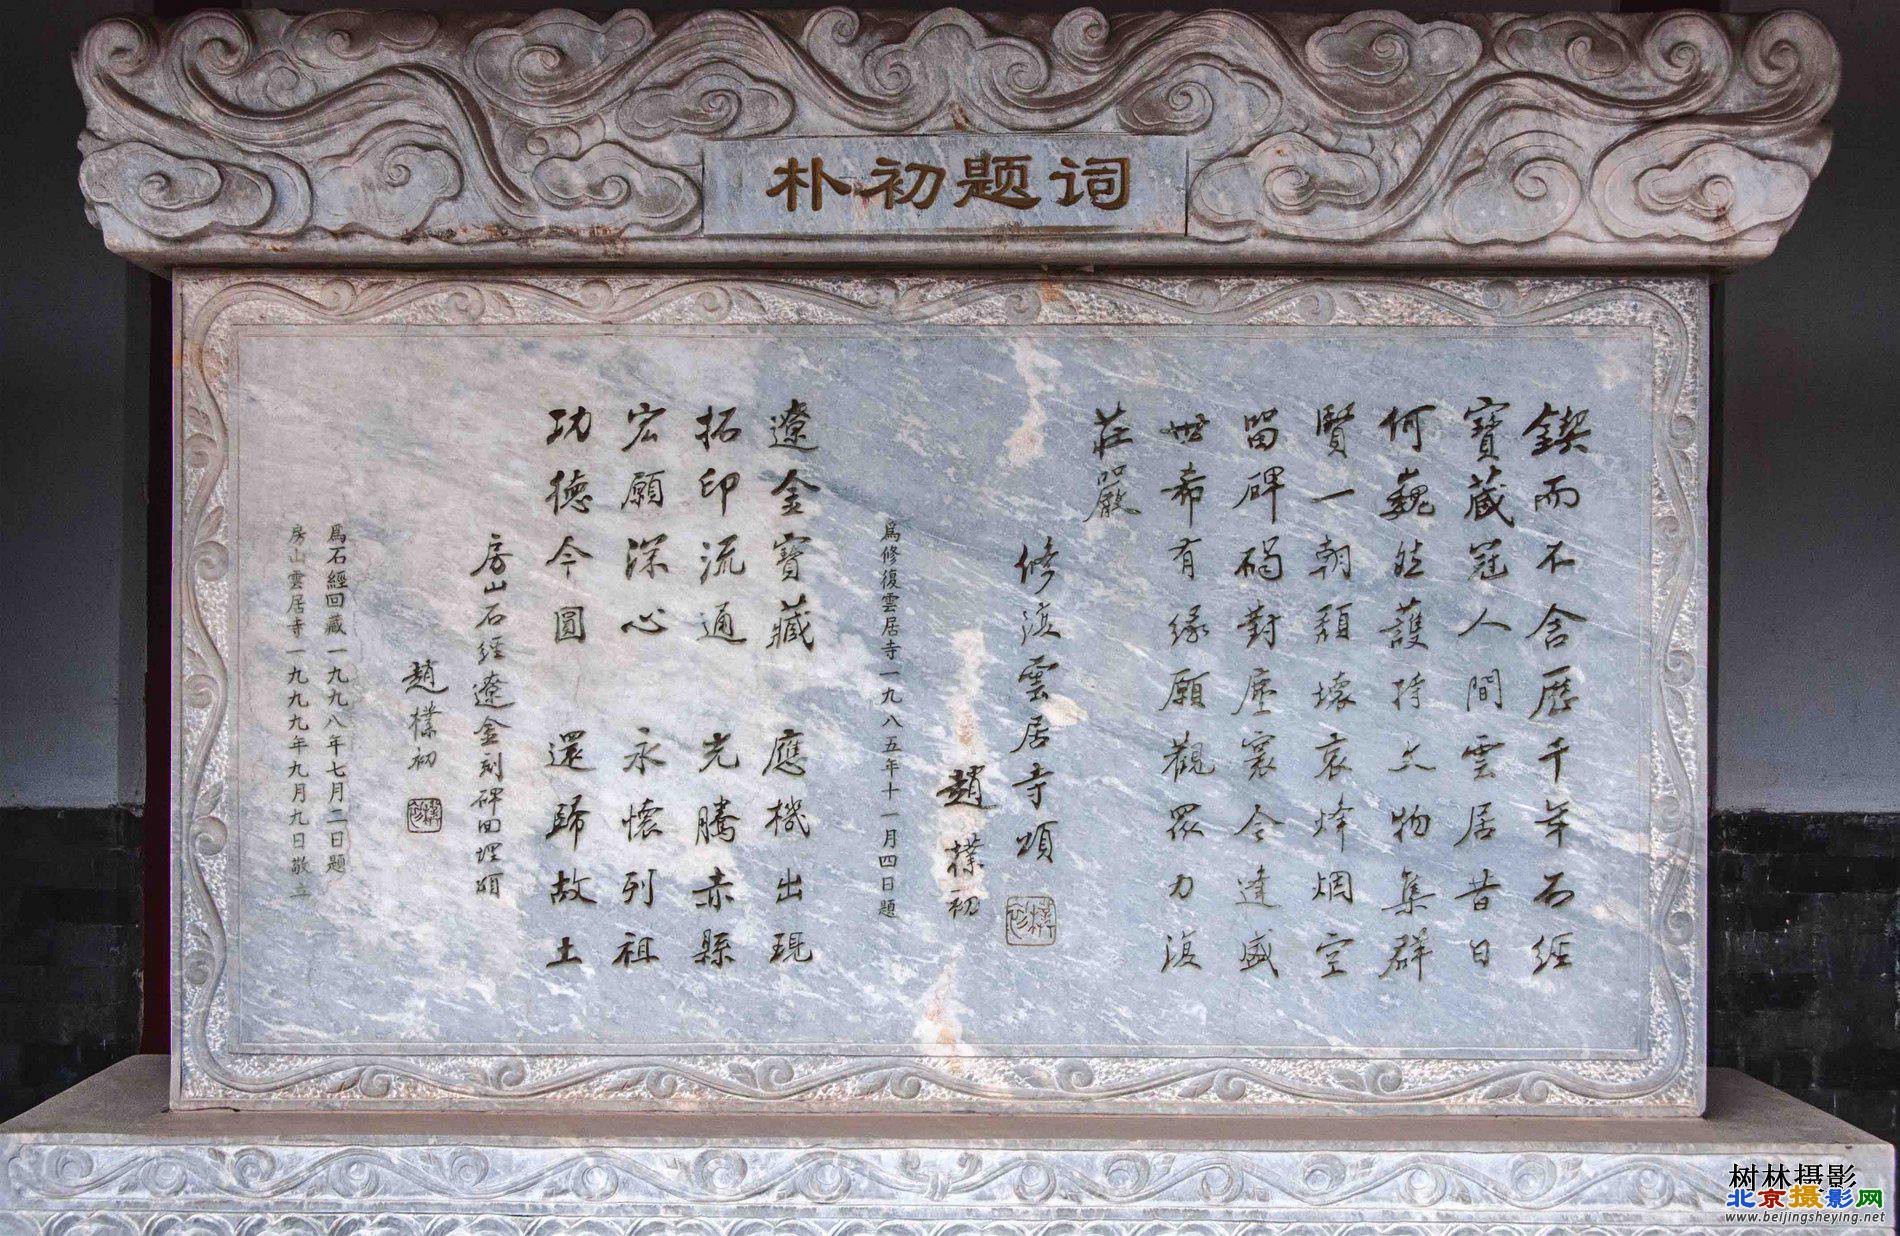 朴初题词
鍥而不舍歷千年石經
寶藏冠人間雲居昔日
何巍然護持文物集群
賢一朝頹壞哀烽烟空
留碑碣對塵寰今逢盛
世希有緣願觀眾力復
莊嚴
修復雲居寺頌
趙樸初
為修復雲居寺一九八五年十一月四日題
遼金寶藏 應機出現
拓印流通 光騰赤縣
宏願深心 永懷列祖
功德今圓 還歸故土
房山石經遼金刻碑回埋頌
趙樸初
爲石經回藏一九九八年七月二日題
房山雲居寺一九九九年九月九日敬立
树林摄影
北京摄影网
www.beijingsheying.net